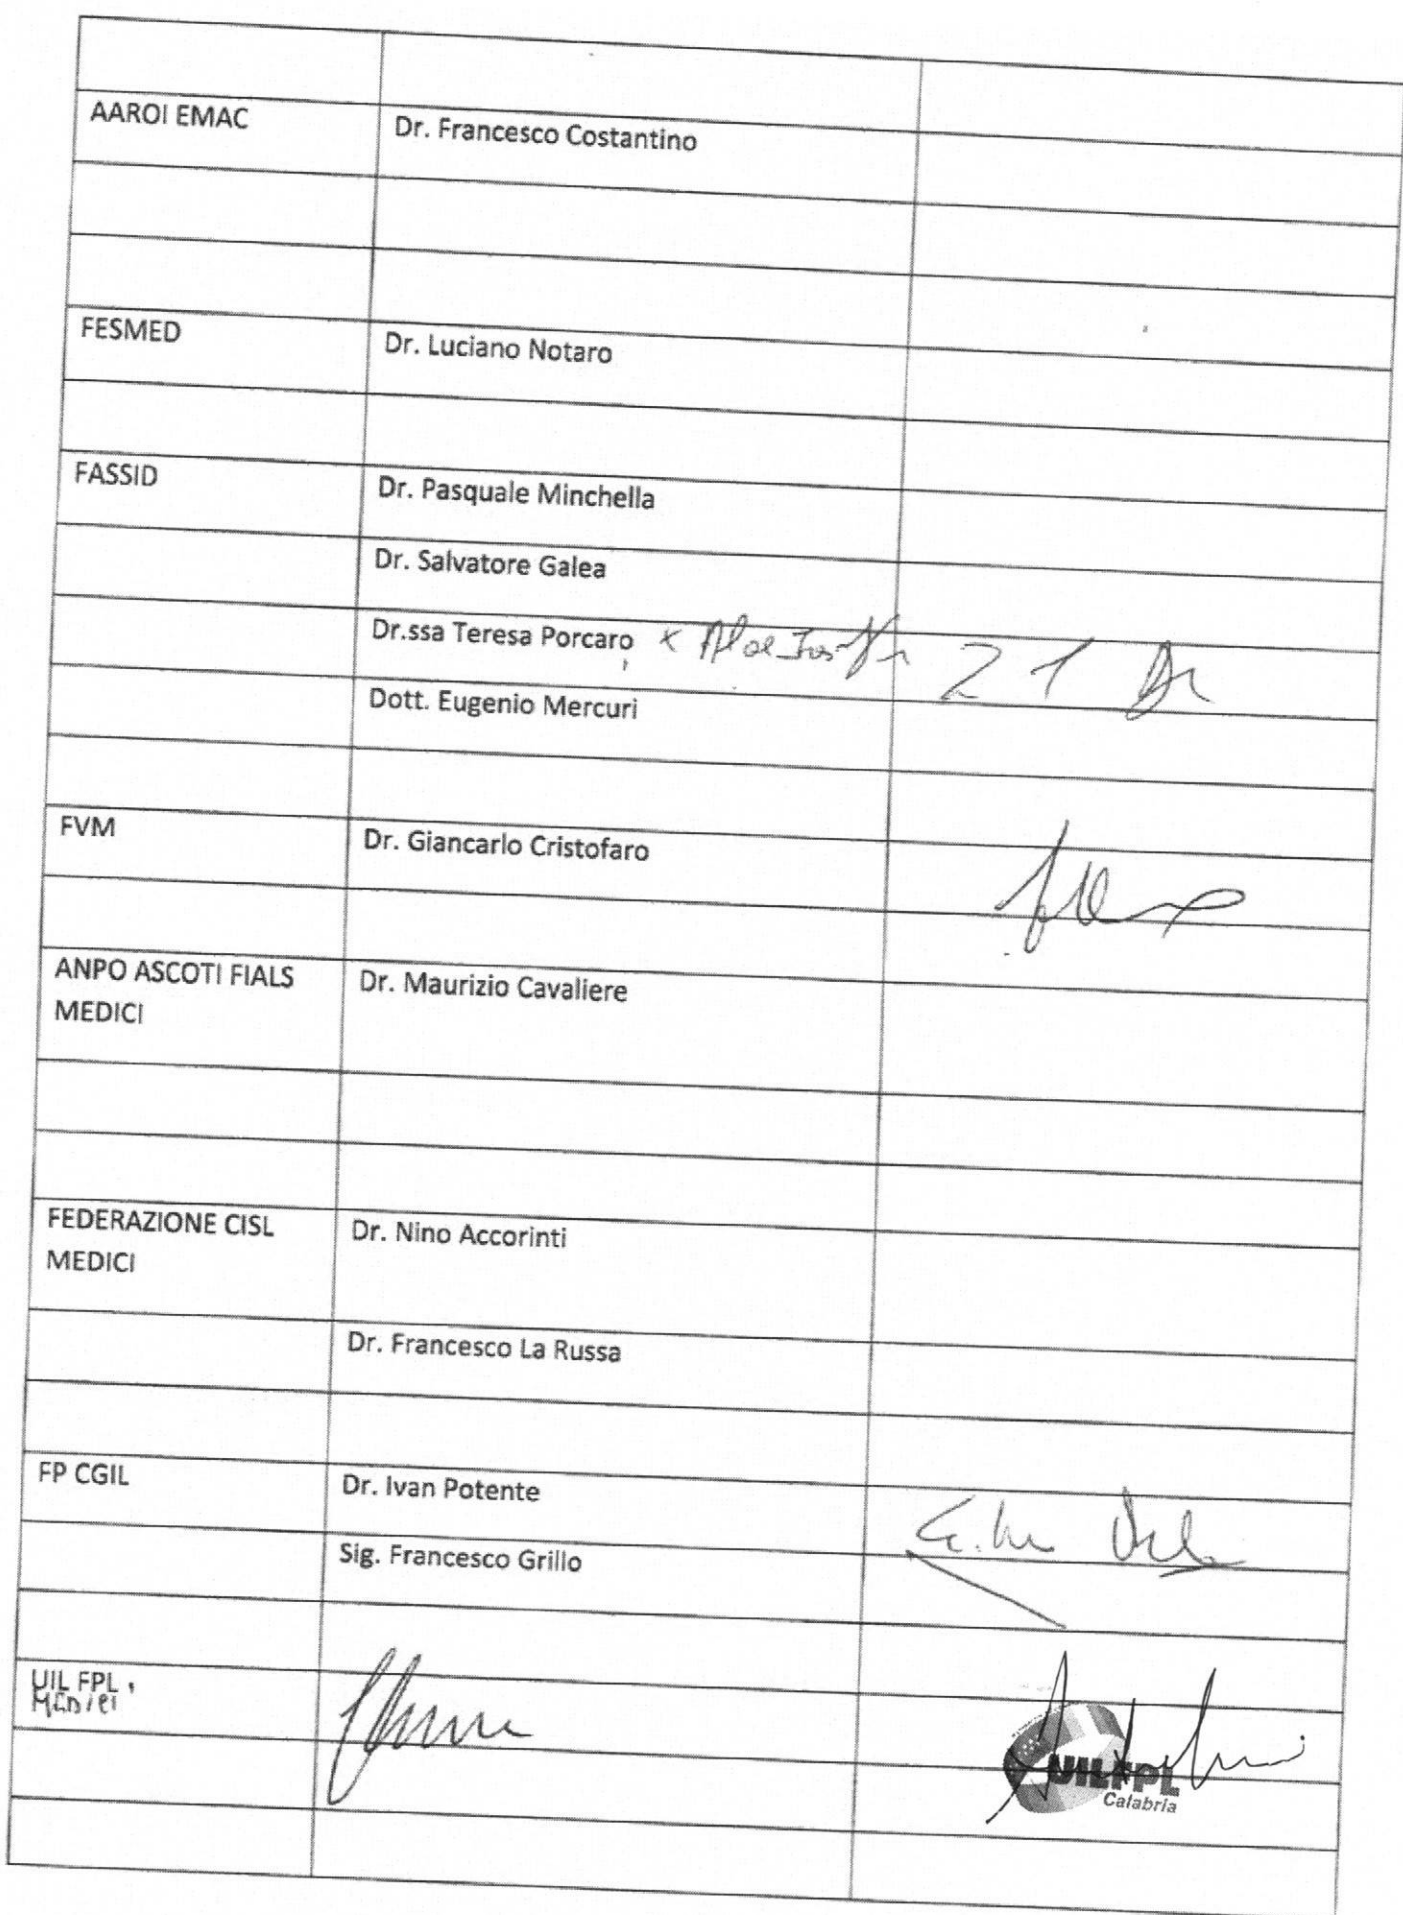 AAROI EMAC Dr. Francesco Costantino
FESMED Dr. Luciano Notaro
FASSID Dr. Pasquale Minchella
Dr. Salvatore Galea
Dr.ssa Teresa Porcaro x
Dott. Eugenio Mercuri
FVM Dr. Giancarlo Cristofaro
ANPO ASCOTI FIALS Dr. Maurizio Cavaliere
MEDICI
FEDERAZIONE CISL Dr. Nino Accorinti
MEDICI
Dr. Francesco La Russa
FP CGIL Dr. Ivan Potente
Sig. Francesco Grillo
UIL FPL
MEDICI
UILFPL
Calabria